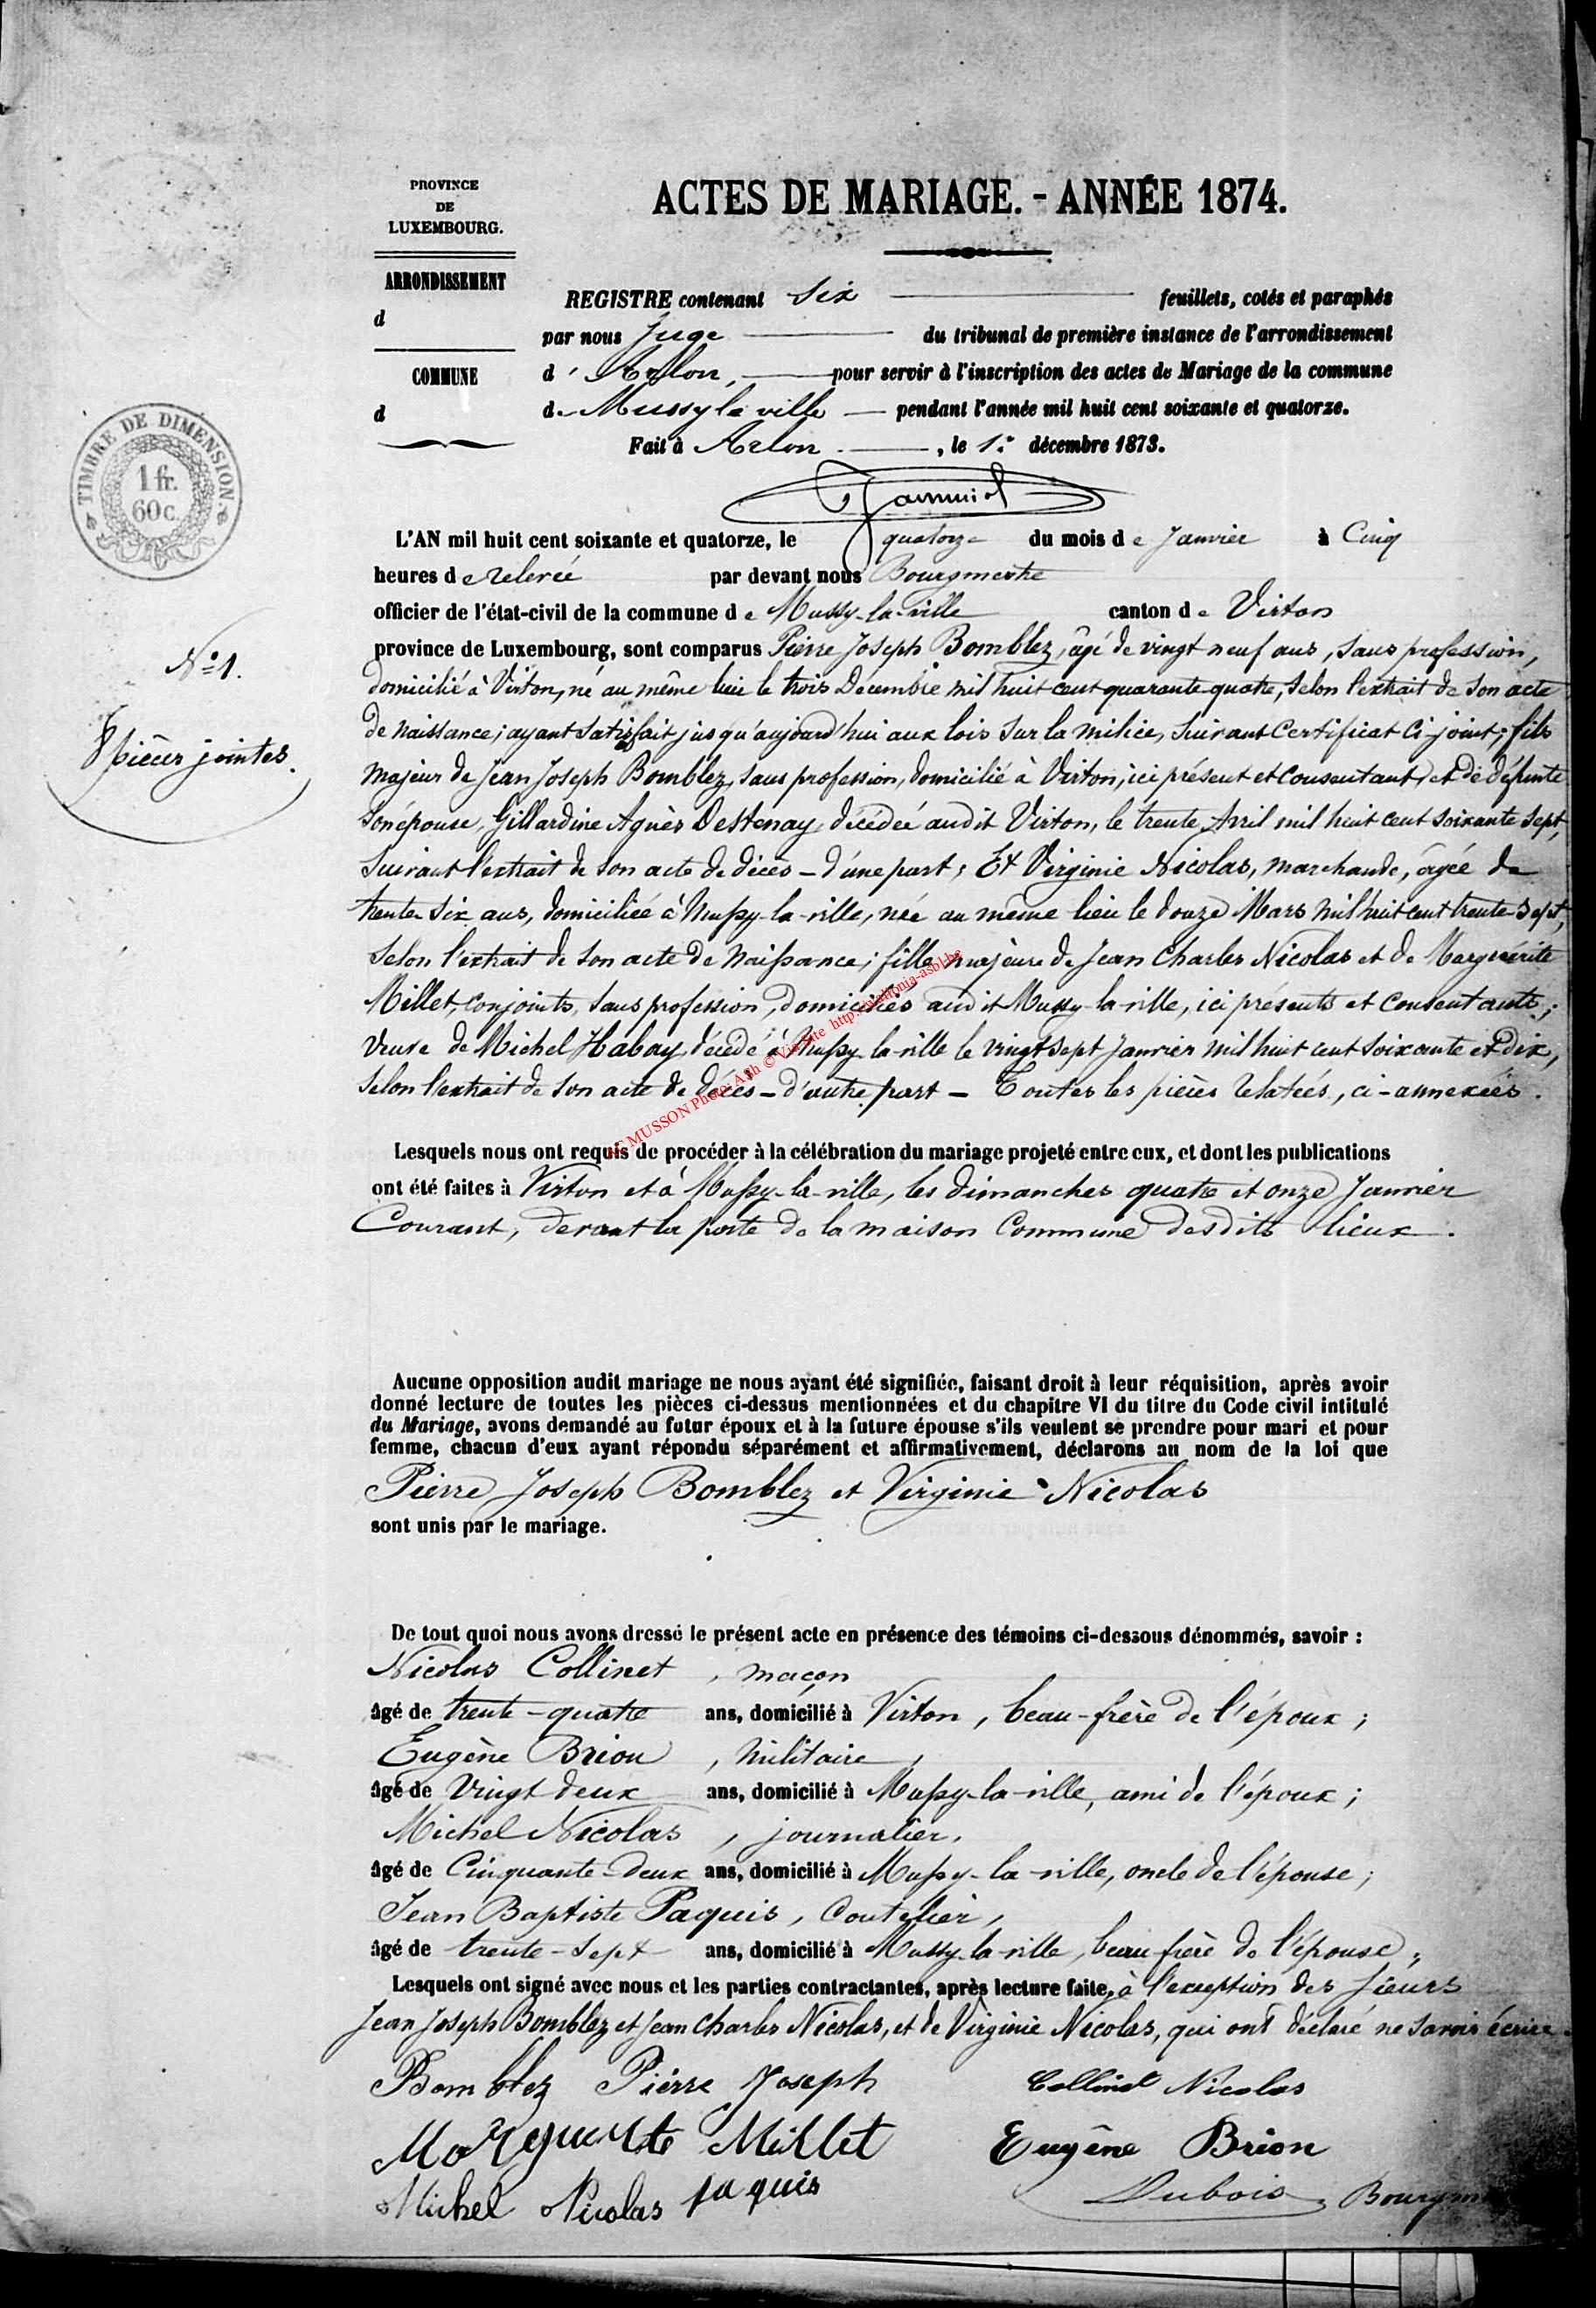 PROVINCE
DE
LUXEMBOURG.
ACTES DE MARIAGE. - ANNÉE 1874.
ARRONDISSEMENT
d
COMMUNE
d
REGISTRE contenant Six feuillets, cotés et paraphés
par nous Juge du tribunal de première instance de l'arrondissement
d' Arlon, pour servir à l'inscription des actes de Mariage de la commune
de Mussy la ville pendant l'année mil huit cent soixante et quatorze.
Fait à Arlon, le 1er décembre 1873.
TIMBRE DE DIMENSION
1 fr.
60c.
L'AN mil huit cent soixante et quatorze, le quatorze du mois de Janvier à Cinq
heures de relevée par devant nous Bourgmestre
officier de l'état-civil de la commune de Mussy-la-ville canton de Virton
N° 1.
8 pièces jointes.
province de Luxembourg, sont comparus Pierre Joseph Bomblez, âgé de vingt neuf ans, sans profession,
domicilié à Virton, né au même lieu le trois Décembre mil huit cent quarante quatre, selon l'extrait de son acte
de naissance; ayant satisfait jusqu'aujourd'hui aux lois sur la milice, suivant Certificat Ci-joint; fils
majeur de Jean Joseph Bomblez, sans profession, domicilié à Virton, ici présent et consentant, et de défunte
son épouse, Gillardine Agnès Destenay, décédée audit Virton, le trente Avril mil huit cent soixante sept,
suivant l'extrait de son acte de décès - d'une part; Et Virginie Nicolas, marchande, âgée de
trente-six ans, domiciliée à Mussy-la-ville, née au même lieu le douze Mars mil huit cent trente-sept,
selon l'extrait de son acte de naissance; fille majeure de Jean Charles Nicolas et de Marguérite
Millet, conjoints, sans profession, domiciliés audit Mussy-la-ville, ici présents et consentants;
Veuve de Michel Habay, décédé à Mussy-la-ville le vingt sept Janvier mil huit cent soixante et dix,
selon l'extrait de son acte de décès - d'autre part - Toutes les pièces relatées, ci-annexées.
MUSSON Photo: ASh © Via Site http://wallonia-asbl.be
Lesquels nous ont requis de procéder à la célébration du mariage projeté entre eux, et dont les publications
ont été faites à Virton et à Mussy-la-ville, les dimanches quatre et onze Janvier
Courant, devant la porte de la maison Commune desdits lieux.
Aucune opposition audit mariage ne nous ayant été signifiée, faisant droit à leur réquisition, après avoir
donné lecture de toutes les pièces ci-dessus mentionnées et du chapitre VI du titre du Code civil intitulé
du Mariage, avons demandé au futur époux et à la future épouse s'ils veulent se prendre pour mari et pour
femme, chacun d'eux ayant répondu séparément et affirmativement, déclarons au nom de la loi que
Pierre Joseph Bomblez et Virginie Nicolas
sont unis par le mariage.
De tout quoi nous avons dressé le présent acte en présence des témoins ci-dessous dénommés, savoir :
Nicolas Collinet, maçon
âgé de trente-quatre ans, domicilié à Virton, beau-frère de l'époux;
Eugène Brion, Militaire,
âgé de Vingt deux ans, domicilié à Mussy-la-ville, ami de l'époux;
Michel Nicolas, journalier,
âgé de Cinquante-deux ans, domicilié à Mussy-la-ville, oncle de l'épouse;
Jean Baptiste Paquis, Coutelier,
âgé de trente-sept ans, domicilié à Mussy-la-ville, beau frère de l'épouse;
Lesquels ont signé avec nous et les parties contractantes, après lecture faite, à l'exception des sieurs
Jean Joseph Bomblez et Jean Charles Nicolas, et de Virginie Nicolas, qui ont déclaré ne savoir écrire.
Bomblez Pierre Joseph Collinet Nicolas
Marguerite Millet Eugêne Brion
Michel Nicolas paquis Dubois, Bourgm